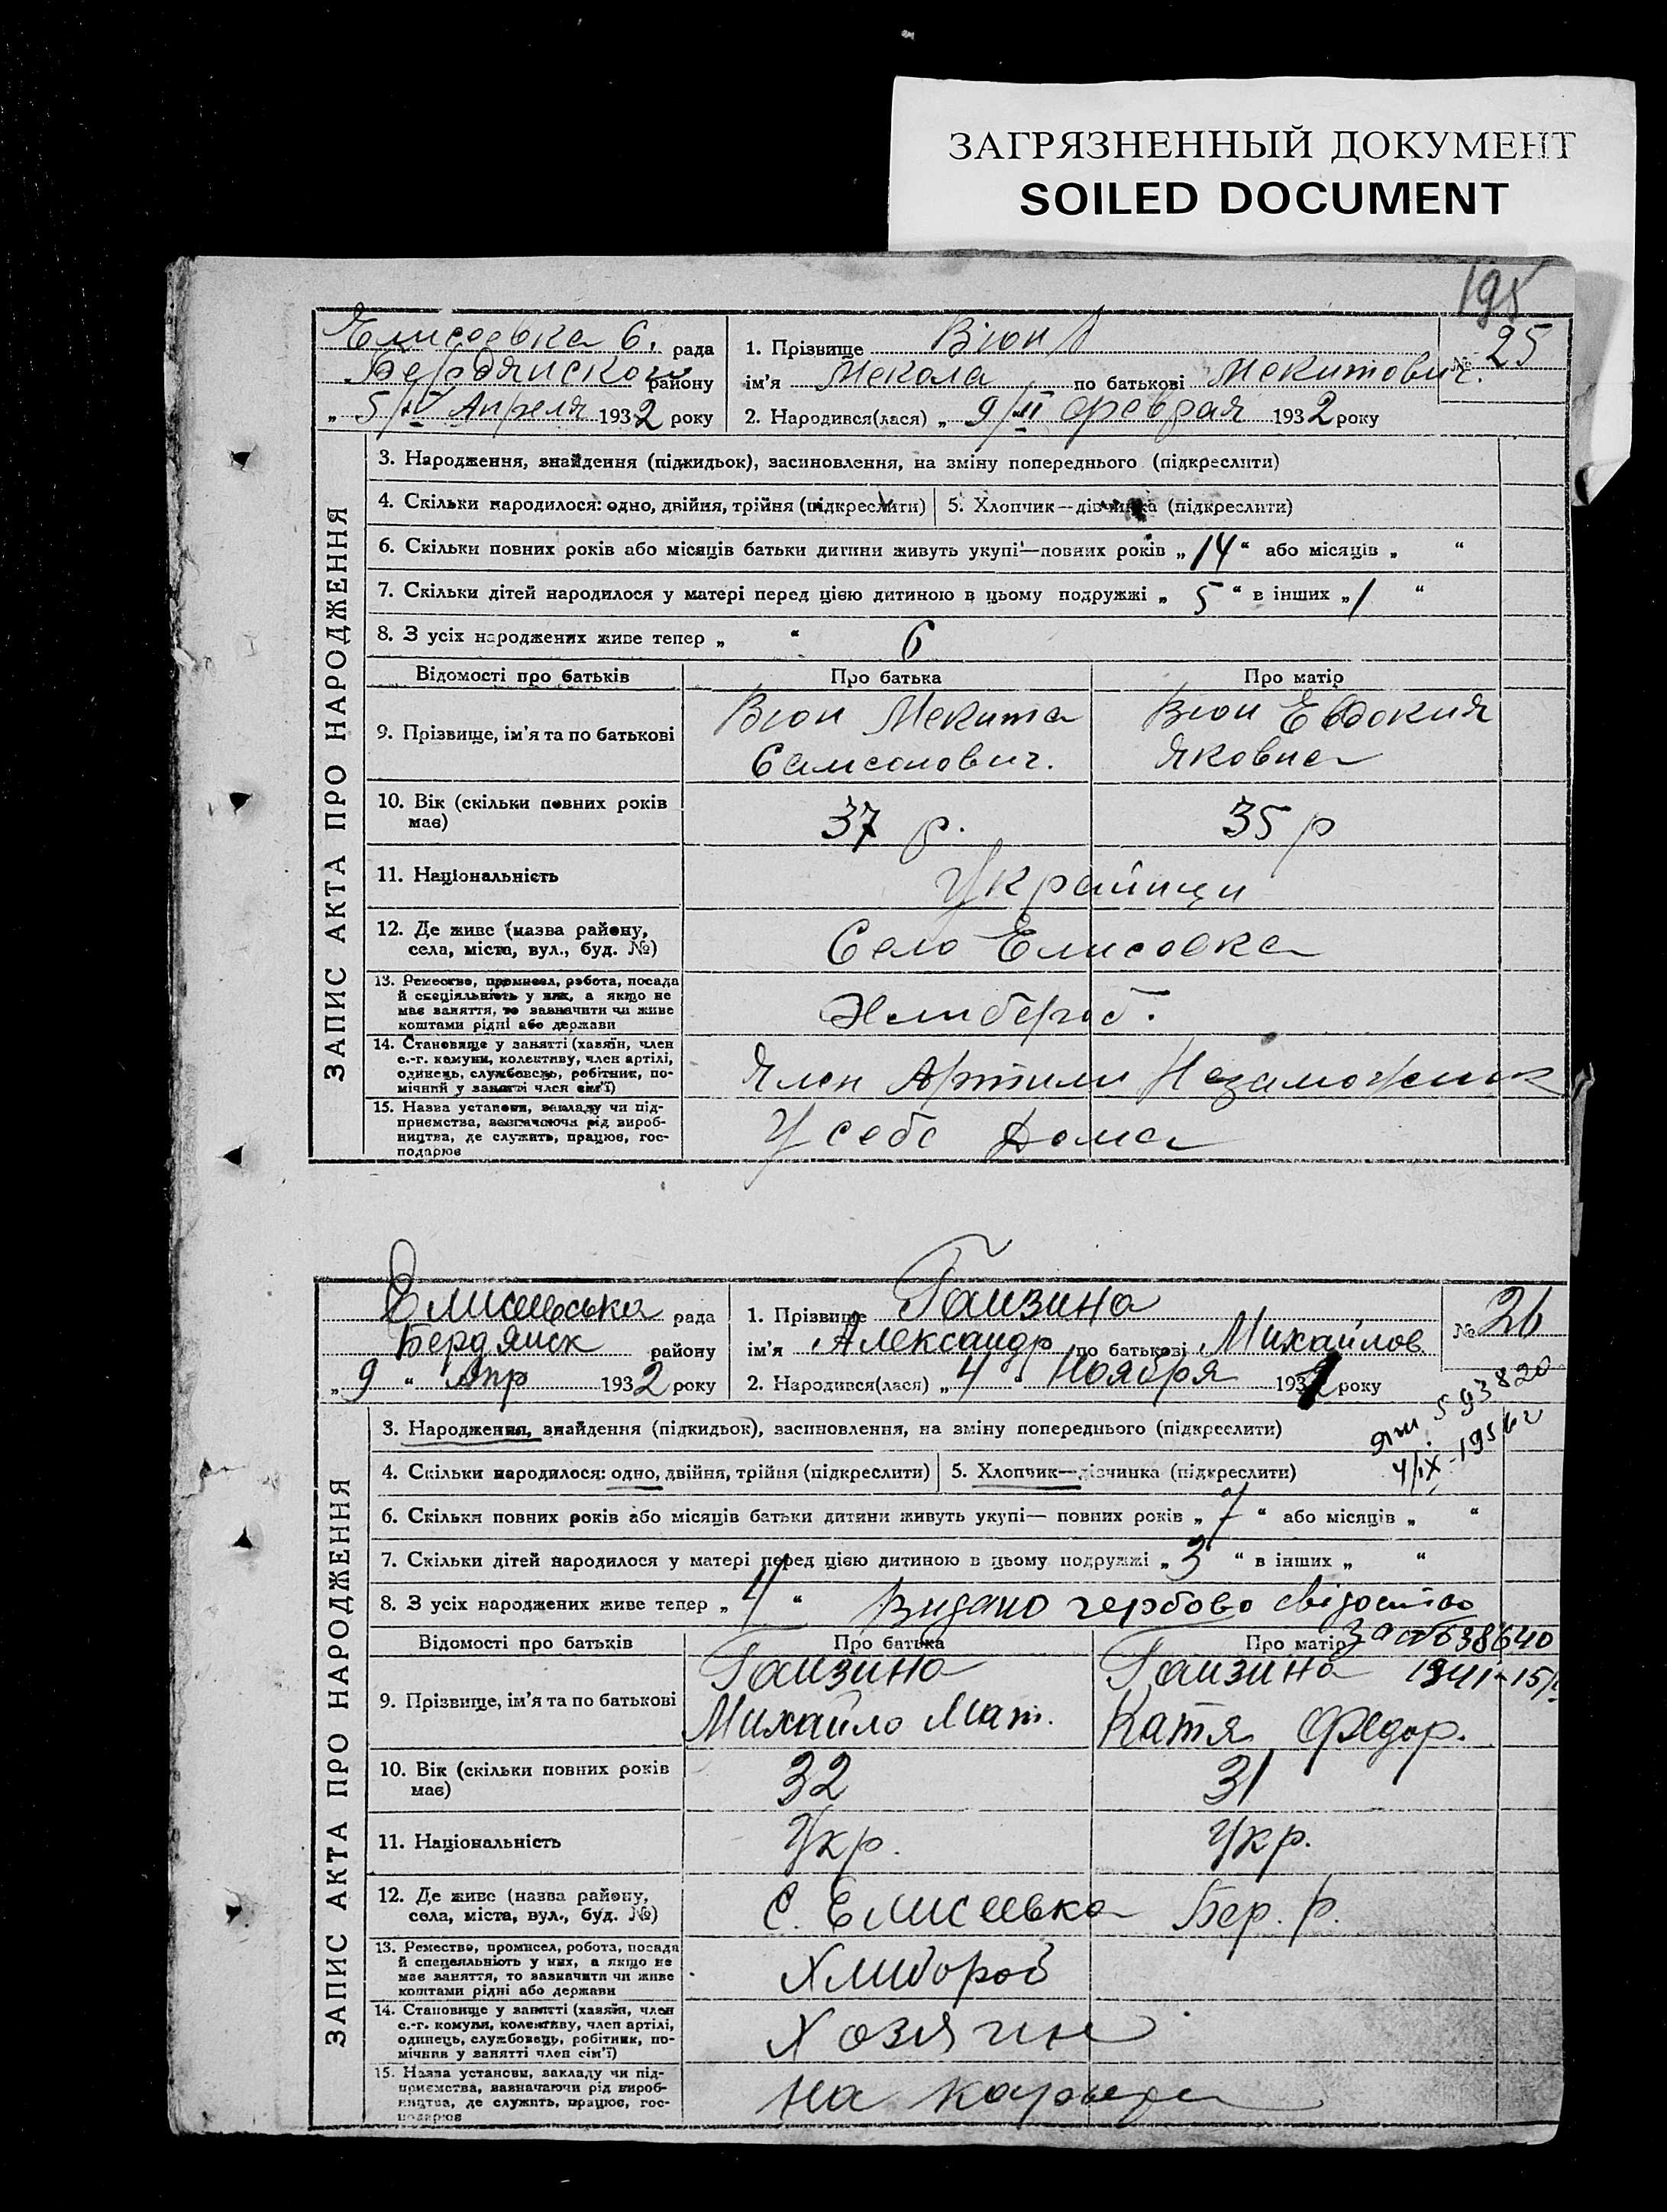 ЗАГРЯЗНЕННЫЙ ДОКУМЕНТ
SOILED DOCUMENT
195
Елисоевка с. рада
Бердянского району
„ 5/IV Апреля 1932 року
1. Прізвище Вюн
ім'я Мекола по батькові Мекитович.
2. Народився(лася) „ 9/II февраля 1932 року
№ 25
ЗАПИС АКТА ПРО НАРОДЖЕННЯ
3. Народження, знайдення (підкидьок), засиновлення, на зміну попереднього (підкреслити)
4. Скільки народилося: одно, двійня, трійня (підкреслити) 5. Хлопчик—дівчинка (підкреслити)
6. Скільки повних років або місяців батьки дитини живуть укупі—повних років „ 14 “ або місяців „ “
7. Скільки дітей народилося у матері перед цією дитиною в цьому подружжі „ 5 “ в інших „ 1 “
8. З усіх народжених живе тепер „ “ 6
Відомості про батьків Про батька Про матір
9. Прізвище, ім'я та по батькові
Вюн Мекита
Самсонович.
Вюн Евдокия
Яковна
10. Вік (скільки повних років
має)
37 р. 35 р
11. Національність Украйнци
12. Де живе (назва району,
села, міста, вул., буд. №)
Село Елисовка
13. Ремество, промисел, робота, посада
й спеціяльність у них, а якщо не
має заняття, то зазначити чи живе
коштами рідні або держави
14. Становище у занятті (хазяїн, член
с.-г. комуни, колективу, член артілі,
одинець, службовець, робітник, по-
мічний у занятті член сім'ї)
Член Артили Незаможник
15. Назва установи, закладу чи під-
приємства, зазначаючи рід вироб-
ництва, де служить, працює, гос-
подарює
У себе Дома
Елисеевська рада
Бердянск району
„ 9 “ Апр 1932 року
1. Прізвище Гаизина
ім'я Александр по батькові Михайлов.
2. Народився(лася) „ 4 Ноября 1931 року
№ 26
593820
4/IX-1956г
ЗАПИС АКТА ПРО НАРОДЖЕННЯ
3. Народження, знайдення (підкидьок), засиновлення, на зміну попереднього (підкреслити)
4. Скільки народилося: одно, двійня, трійня (підкреслити) 5. Хлопчик—дівчинка (підкреслити)
6. Скільки повних років або місяців батьки дитини живуть укупі— повних років „ 7 “ або місяців „ “
7. Скільки дітей народилося у матері перед цією дитиною в цьому подружжі „ 3 “ в інших „ “
8. З усіх народжених живе тепер „ 4 “ Видано гербово свідоство
Відомості про батьків Про батька Про матір
за № 638640
1941-15/
9. Прізвище, ім'я та по батькові
Гаизина
Михайло Мат.
Гаизина
Катя Федор.
10. Вік (скільки повних років
має)
32 31
11. Національність Укр. Укр.
12. Де живе (назва району,
села, міста, вул., буд. №)
С. Елисеевка Бер. р.
13. Ремество, промисел, робота, посада
й спеціяльність у них, а якщо не
має заняття, то зазначити чи живе
коштами рідні або держави
Хлибороб
14. Становище у занятті (хазяїн, член
с.-г. комуни, колективу, член артілі,
одинець, службовець, робітник, по-
мічний у занятті член сім'ї)
Хозягин
15. Назва установи, закладу чи під-
приємства, зазначаючи рід вироб-
ництва, де служить, працює, гос-
подарює
На